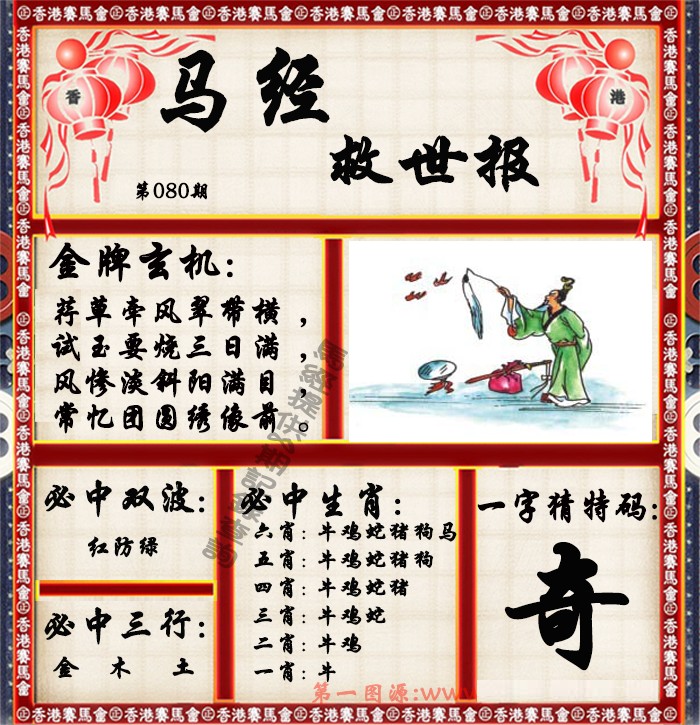 香港賽馬會
香
港
马经
救世报
第080期
金牌玄机:
荇草牵风翠带横，
试玉要烧三日满，
风惨淡斜阳满目，
常忆团圆绣像前。
必中双波:
红防绿
必中三行:
金 木 土
必中生肖:
六肖:牛鸡蛇猪狗马
五肖:牛鸡蛇猪狗
四肖:牛鸡蛇猪
三肖:牛鸡蛇
二肖:牛鸡
一肖:牛
一字猜特码:
奇
第一图源:www